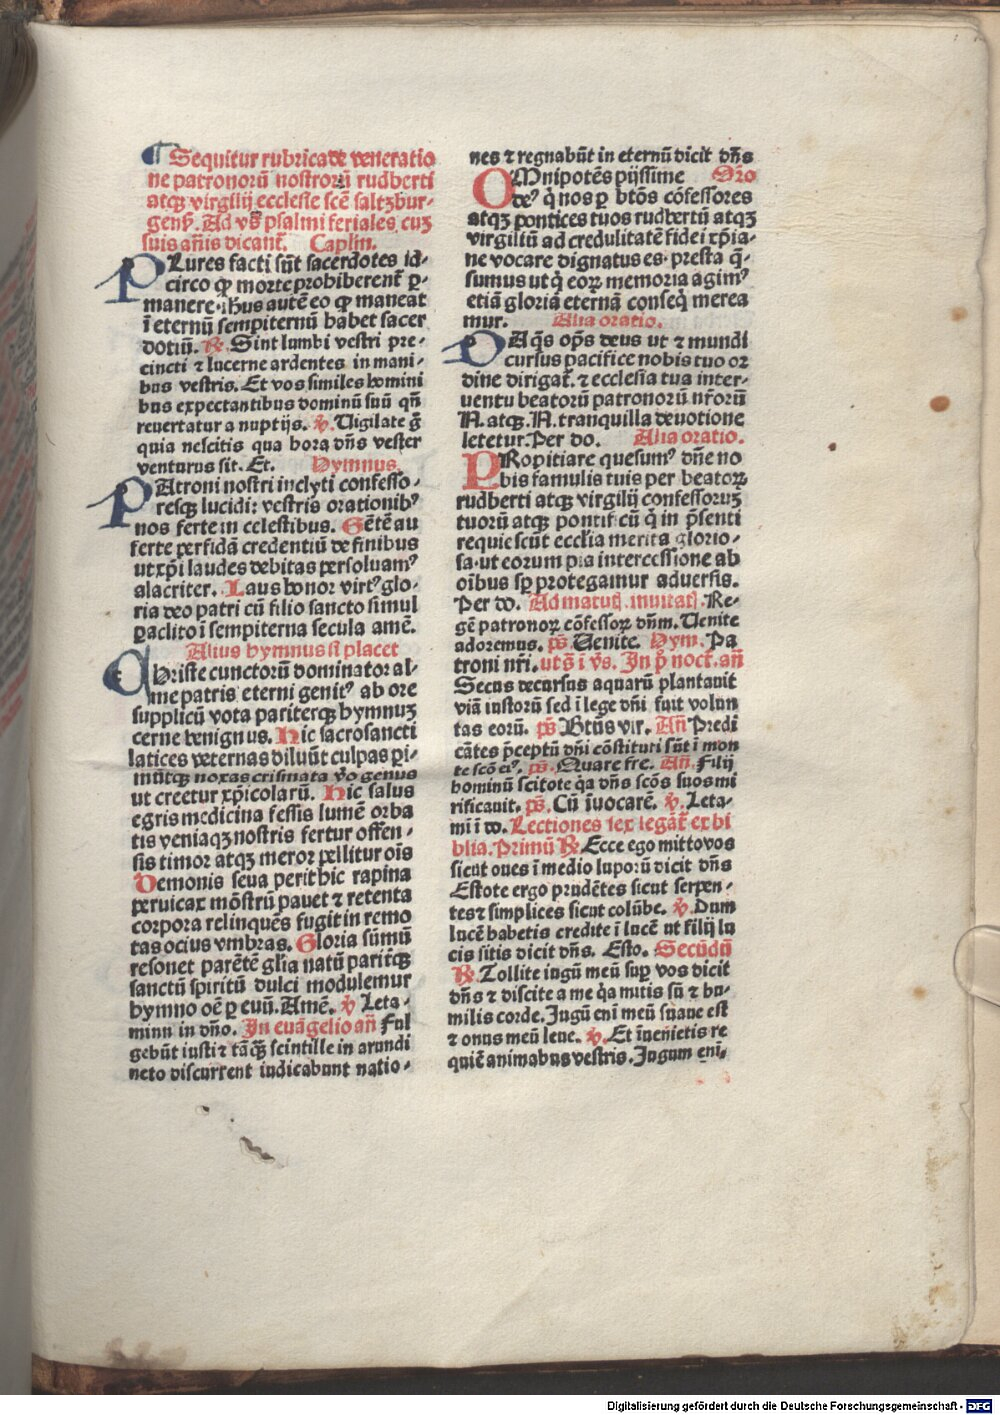 ¶ Sequitur rubrica de veneratio
ne patronorū nostrorū rudberti
atqꝫ virgilij ecclesie scē saltzbur⸗
genṡ. Ad vꝭ psalmi feriales cuꝫ
suis añis dicant̄. Caplm.
PLures facti sūt sacerdotes id⸗
circo qꝫ morte prohiberent̄ ꝑ⸗
manere.ihus autē eo qꝫ maneat
ī eternū sempiternū habet sacer
dotiū. ℟. Sint lumbi vestri pre⸗
cincti ⁊ lucerne ardentes in mani⸗
bus vestris. Et vos similes homini
bus expectantibus dominū suū qn̄
reuertatur a nuptijs. ℣. Uigilate g̃
quia nescitis qua hora dn̄s vester
venturus sit. Et. Hymnus.
PAtroni nostri inclyti confesso⸗
resqꝫ lucidi: vestris orationibꝰ
nos ferte in celestibus. Gētē au
ferte perfidā credentiū de finibus
ut xp̄i laudes debitas persoluamꝰ
alacriter. Laus honor virtꝰ glo⸗
ria deo patri cū filio sancto simul
ꝑaclito ī sempiterna secula amē.
Alius hymnus si placet
CHriste cunctorū dominator al⸗
me patris eterni genitꝰ ab ore
supplicū vota pariterqꝫ hymnuꝫ
cerne benignus. Hic sacrosancti
latices veternas diluūt culpas ꝑi⸗
mūtqꝫ noxas crismata v̊o genus
ut creetur xp̄icolarū. Hic salus
egris medicina fessis lumē orba
tis veniaqꝫ nostris fertur offen⸗
sis timor atqꝫ meror pellitur oīs
Demonis seua perit hic rapina
peruicax mōstrū pauet ⁊ retenta
corpora relinquēs fugit in remo
tas ocius vmbras. Gloria sūmū
resonet parētē gl̄ia natū parit̄qꝫ
sanctū spiritū dulci modulemur
hymno oē ꝑ euū. Amē. ℣ Leta⸗
mini in dn̄o. In euāgelio an̄ Ful
gebūt iusti ⁊ tāqꝫ scintille in arundi
neto discurrent iudicabunt natio⸗
nes ⁊ regnabūt in eternū dicit dn̄s
OMnipotēs pijssime Oro
deꝰ q̇ nos ꝑ btōs cōfessores
atqꝫ pontices tuos rudbertū atqꝫ
virgiliū ad credulitatē fidei xp̄ia⸗
ne vocare dignatus es. presta q̄⸗
sumus ut q̇ eoꝝ memoria agimꝰ
etiā gloriā eternā conseq̇ merea
mur. Alia oratio.
DA q̄s op̄s deus ut ⁊ mundi
cursus pacifice nobis tuo or
dine dirigat̄. ⁊ ecclesia tua inter⸗
uentu beatorū patronorū nr̄orū
N. atqꝫ. N. tranquilla deuotione
letetur. Per do. Alia oratio.
PRopitiare quesumꝰ dn̄e no
bis famulis tuis per beatoꝝ
rudberti atqꝫ virgilij confessoruꝫ
tuorū atqꝫ pontif cū q̇ in p̄senti
requiescūt eccl̄ia merita glorio⸗
sa.ut eorum pia intercessione ab
oībus sꝑ protegamur aduersis.
Per do. Ad matut. inuitat. Re⸗
gē patronoꝝ cōfessoꝝ dn̄m. Uenite
adoremus. pṡ. Uenite. Hym. Pa
troni nr̄i. ut s̄ i vꝭ. In p̄ noct̄. an̄
Secus decursus aquarū plantauit
viā iustorū sed ī lege dn̄i fuit volun
tas eorū. pṡ Btūs vir. An̄ Predi
cātes p̄ceptū dn̄i cōstituti sūt ī mon
te scō eiꝰ. pṡ. Quare fre. An̄. Filij
hominū scitote q̇a dn̄s scōs suos mi
rificauit. pṡ. Cū īuocarē. ℣. Leta⸗
mi ī do. Lectiones sex legāt̄ ex bi
blia. Primū ℟. Ecce ego mitto vos
sicut oues ī medio luporū dicit dn̄s
Estote ergo prudētes sicut serpen⸗
tes ⁊ simplices sicut colūbe. ℣. Dum
lucē habetis credite ī lucē ut filij lu
cis sitis dicit dn̄s. Esto. Secūdū
℟. Tollite iugū meū suꝑ vos dicit
dn̄s ⁊ discite a me q̇a mitis sū ⁊ hu⸗
milis corde. Jugū eni meū suaue est
⁊ onus meū leue. ℣. Et īuenietis re
quiē animabus vestris. Jugum enī.
Digitalisierung gefördert durch die Deutsche Forschungsgemeinschaft - DFG